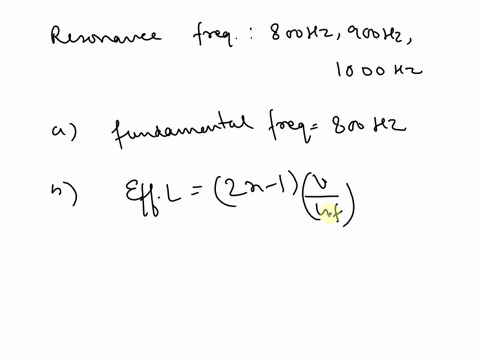 Resonance freq. : 800Hz, 900Hz,
1000 Hz
a) fundamental freq = 800 Hz
b) Eff. L = (2n-1) (v/4f)